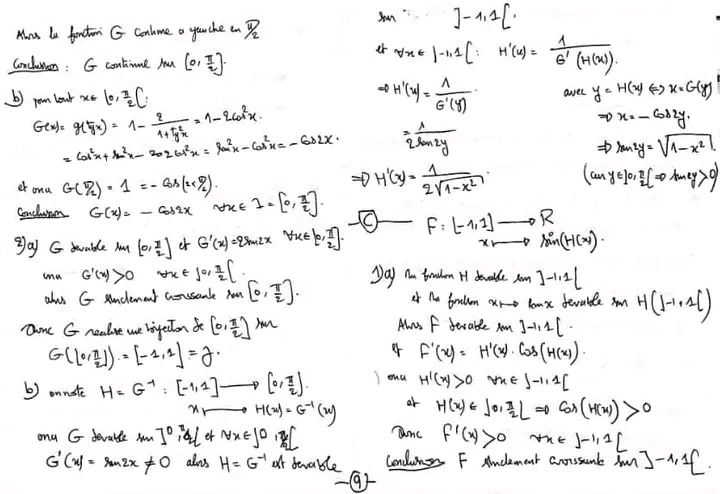 Alors la fonction G continue a gauche en π/2
Conclusion : G continue sur [0, π/2].
b) pour tout x ∈ [0, π/2[ :
G(x) = g(tgx) = 1 - 2/(1+tg²x) = 1 - 2cos²x.
= cos²x + sin²x - 2cos²x = sin²x - cos²x = - cos2x.
et on a G(π/2) = 1 = - cos(2×π/2).
Conclusion G(x) = - cos2x ∀x ∈ I = [0, π/2].
2) a) G derivable sur [0, π/2] et G'(x) = 2sin2x ∀x ∈ [0, π/2].
on a G'(x) > 0 ∀x ∈ ]0, π/2[.
alors G strictement croissante sur [0, π/2].
Donc G realise une bijection de [0, π/2] sur
G([0, π/2]) = [-1, 1] = J.
b) on note H = G⁻¹ : [-1, 1] → [0, π/2].
x ↦ H(x) = G⁻¹(x)
on a G derivable sur ]0, π/2[ et ∀x ∈ ]0, π/2[
G'(x) = sin2x ≠ 0 alors H = G⁻¹ est derivable
sur ]-1, 1[.
et ∀x ∈ ]-1, 1[ : H'(x) = 1/G'(H(x)).
⇒ H'(x) = 1/G'(y) avec y = H(x) ⇔ x = G(y)
= 1/2sin2y ⇒ x = - cos2y.
⇒ sin2y = √(1-x²)
⇒ H'(x) = 1/(2√(1-x²)) (car y ∈ ]0, π/2[ ⇒ sin2y > 0)
C F : [-1, 1] → R
x ↦ sin(H(x)).
1) a) la fonction H derivable sur ]-1, 1[
et la fonction x ↦ sinx derivable sur H(]-1, 1[)
Alors F derivable sur ]-1, 1[.
et F'(x) = H'(x) · cos(H(x)).
on a H'(x) > 0 ∀x ∈ ]-1, 1[
et H(x) ∈ ]0, π/2[ ⇒ cos(H(x)) > 0
Donc F'(x) > 0 ∀x ∈ ]-1, 1[
Conclusion F strictement croissante sur ]-1, 1[.
-9-